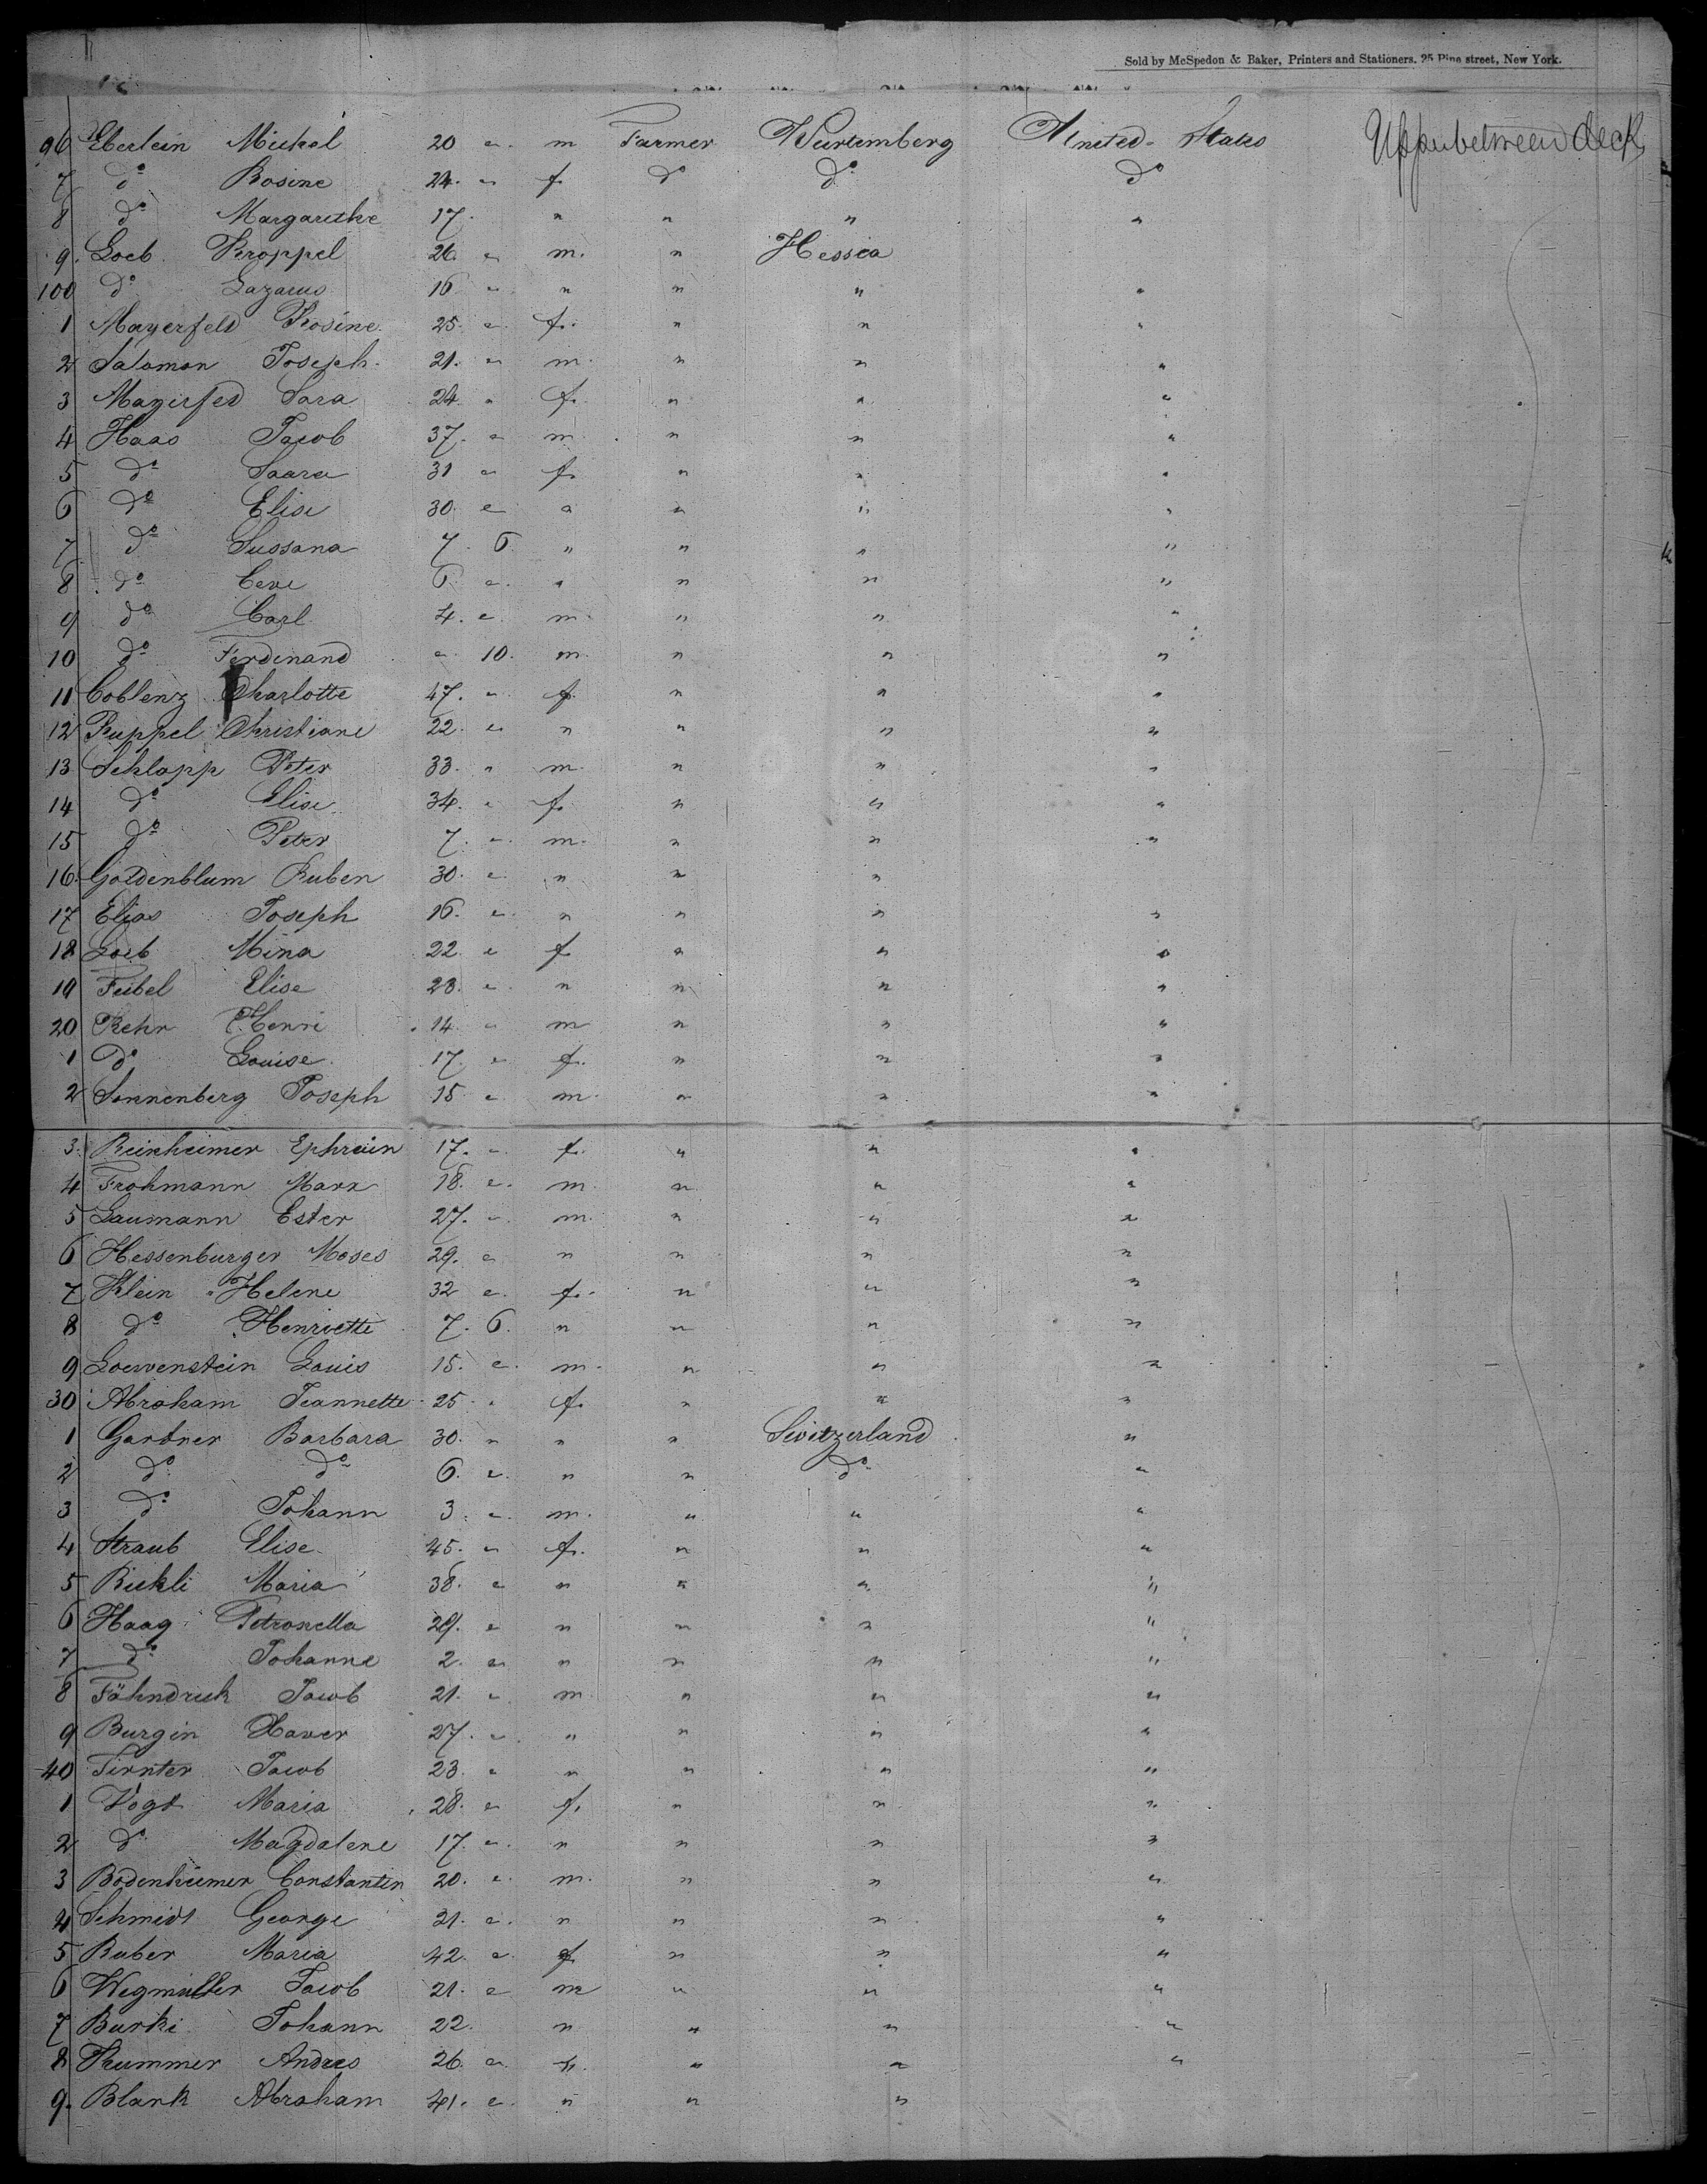 Sold by McSpedon & Baker, Printers and Stationers, 25 Pine street, New York.
96 Eberlein Michel 20 " m Farmer Wurtemberg United States Upper between deck
7 do Rosine 24. " f. do do do
8 do Margarethe 17. " " " "
9. Loeb Kroppel 26. " m. " Hessia
100 do Lazarus 16 " " " " "
1 Mayerfeld Rosine. 25. " f. " " "
2 Salomon Joseph. 21. " m. " " "
3 Mayerfed Sara 24. " f. " " "
4 Haas Jacob 37. " m " " "
5 do Saara 31 " f. " " "
6 do Elise 30. " " " " "
7 do Sussana 7. 6 " " " "
8 do Ceve 6. " " " " "
9 do Carl 4. " m. " " "
10 do Ferdinand " 10. m. " " "
11 Coblenz Charlotte 47. " f. " " "
12 Ruppel Christiane 22. " " " " "
13 Schlapp Peter 33. " m. " " "
14 do Elise 34. " f. " " "
15 do Peter 7. " m. " " "
16. Goldenblum Ruben 30. " " " "
17 Elias Joseph 16. " " " " "
18 Loeb Mina 22 " f " " "
19 Feibel Elise 23. " " " " "
20 Kehr Henri 14 " m " " "
1 do Louise 17. " f. " " "
2 Sonnenberg Joseph 15 " m. " " "
3. Reinheimer Ephrain 17. " f. " " "
4 Frohmann Marx 18. " m. " " "
5 Laumann Ester 27. " m. " " "
6 Hessenburger Moses 29. " " " " "
7 Klein Helene 32 " f. " " "
8 do Henriette 7. 6. " " " "
9 Loewenstein Louis 15. " m. " " "
30 Abraham Jeannette 25 " f. " " "
1 Gardner Barbara 30. " " " Switzerland "
2 do do 6. " " " do "
3 do Johann 3. " m. " " "
4 Straub Elise 45. " f. " " "
5 Rickli Maria 38. " " " " "
6 Haag Petronella 29. " " " " "
7 do Johanne 2. " " " " "
8 Fähndrich Jacob 21. " m. " " "
9 Burgin Xaver 27. " " " " "
40 Firnter Jacob 23. " " " " "
1 Vogt Maria 28. " f. " " "
2 do Magdalene 17. " " " " "
3 Bodenheimer Constantin 20. " m. " " "
4 Schmidt George 21. " " " " "
5 Ruber Maria 42. " f " " "
6 Wegmüller Jacob 21. " m " " "
7 Burki Johann 22. " " " "
8 Kummer Andres 26. " " " " "
9. Blank Abraham 41. " " " "